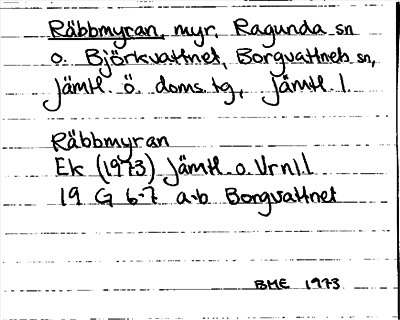 Räbbmyran, myr, Ragunda sn
o. Björkvattnet, Borgvattnets sn,
Jämtl. ö. doms. tg, Jämtl. l.
Räbbmyran
Ek (1973) Jämtl. o. Vrnl. l
19 G 6-7 a-b Borgvattnet
BME 1973